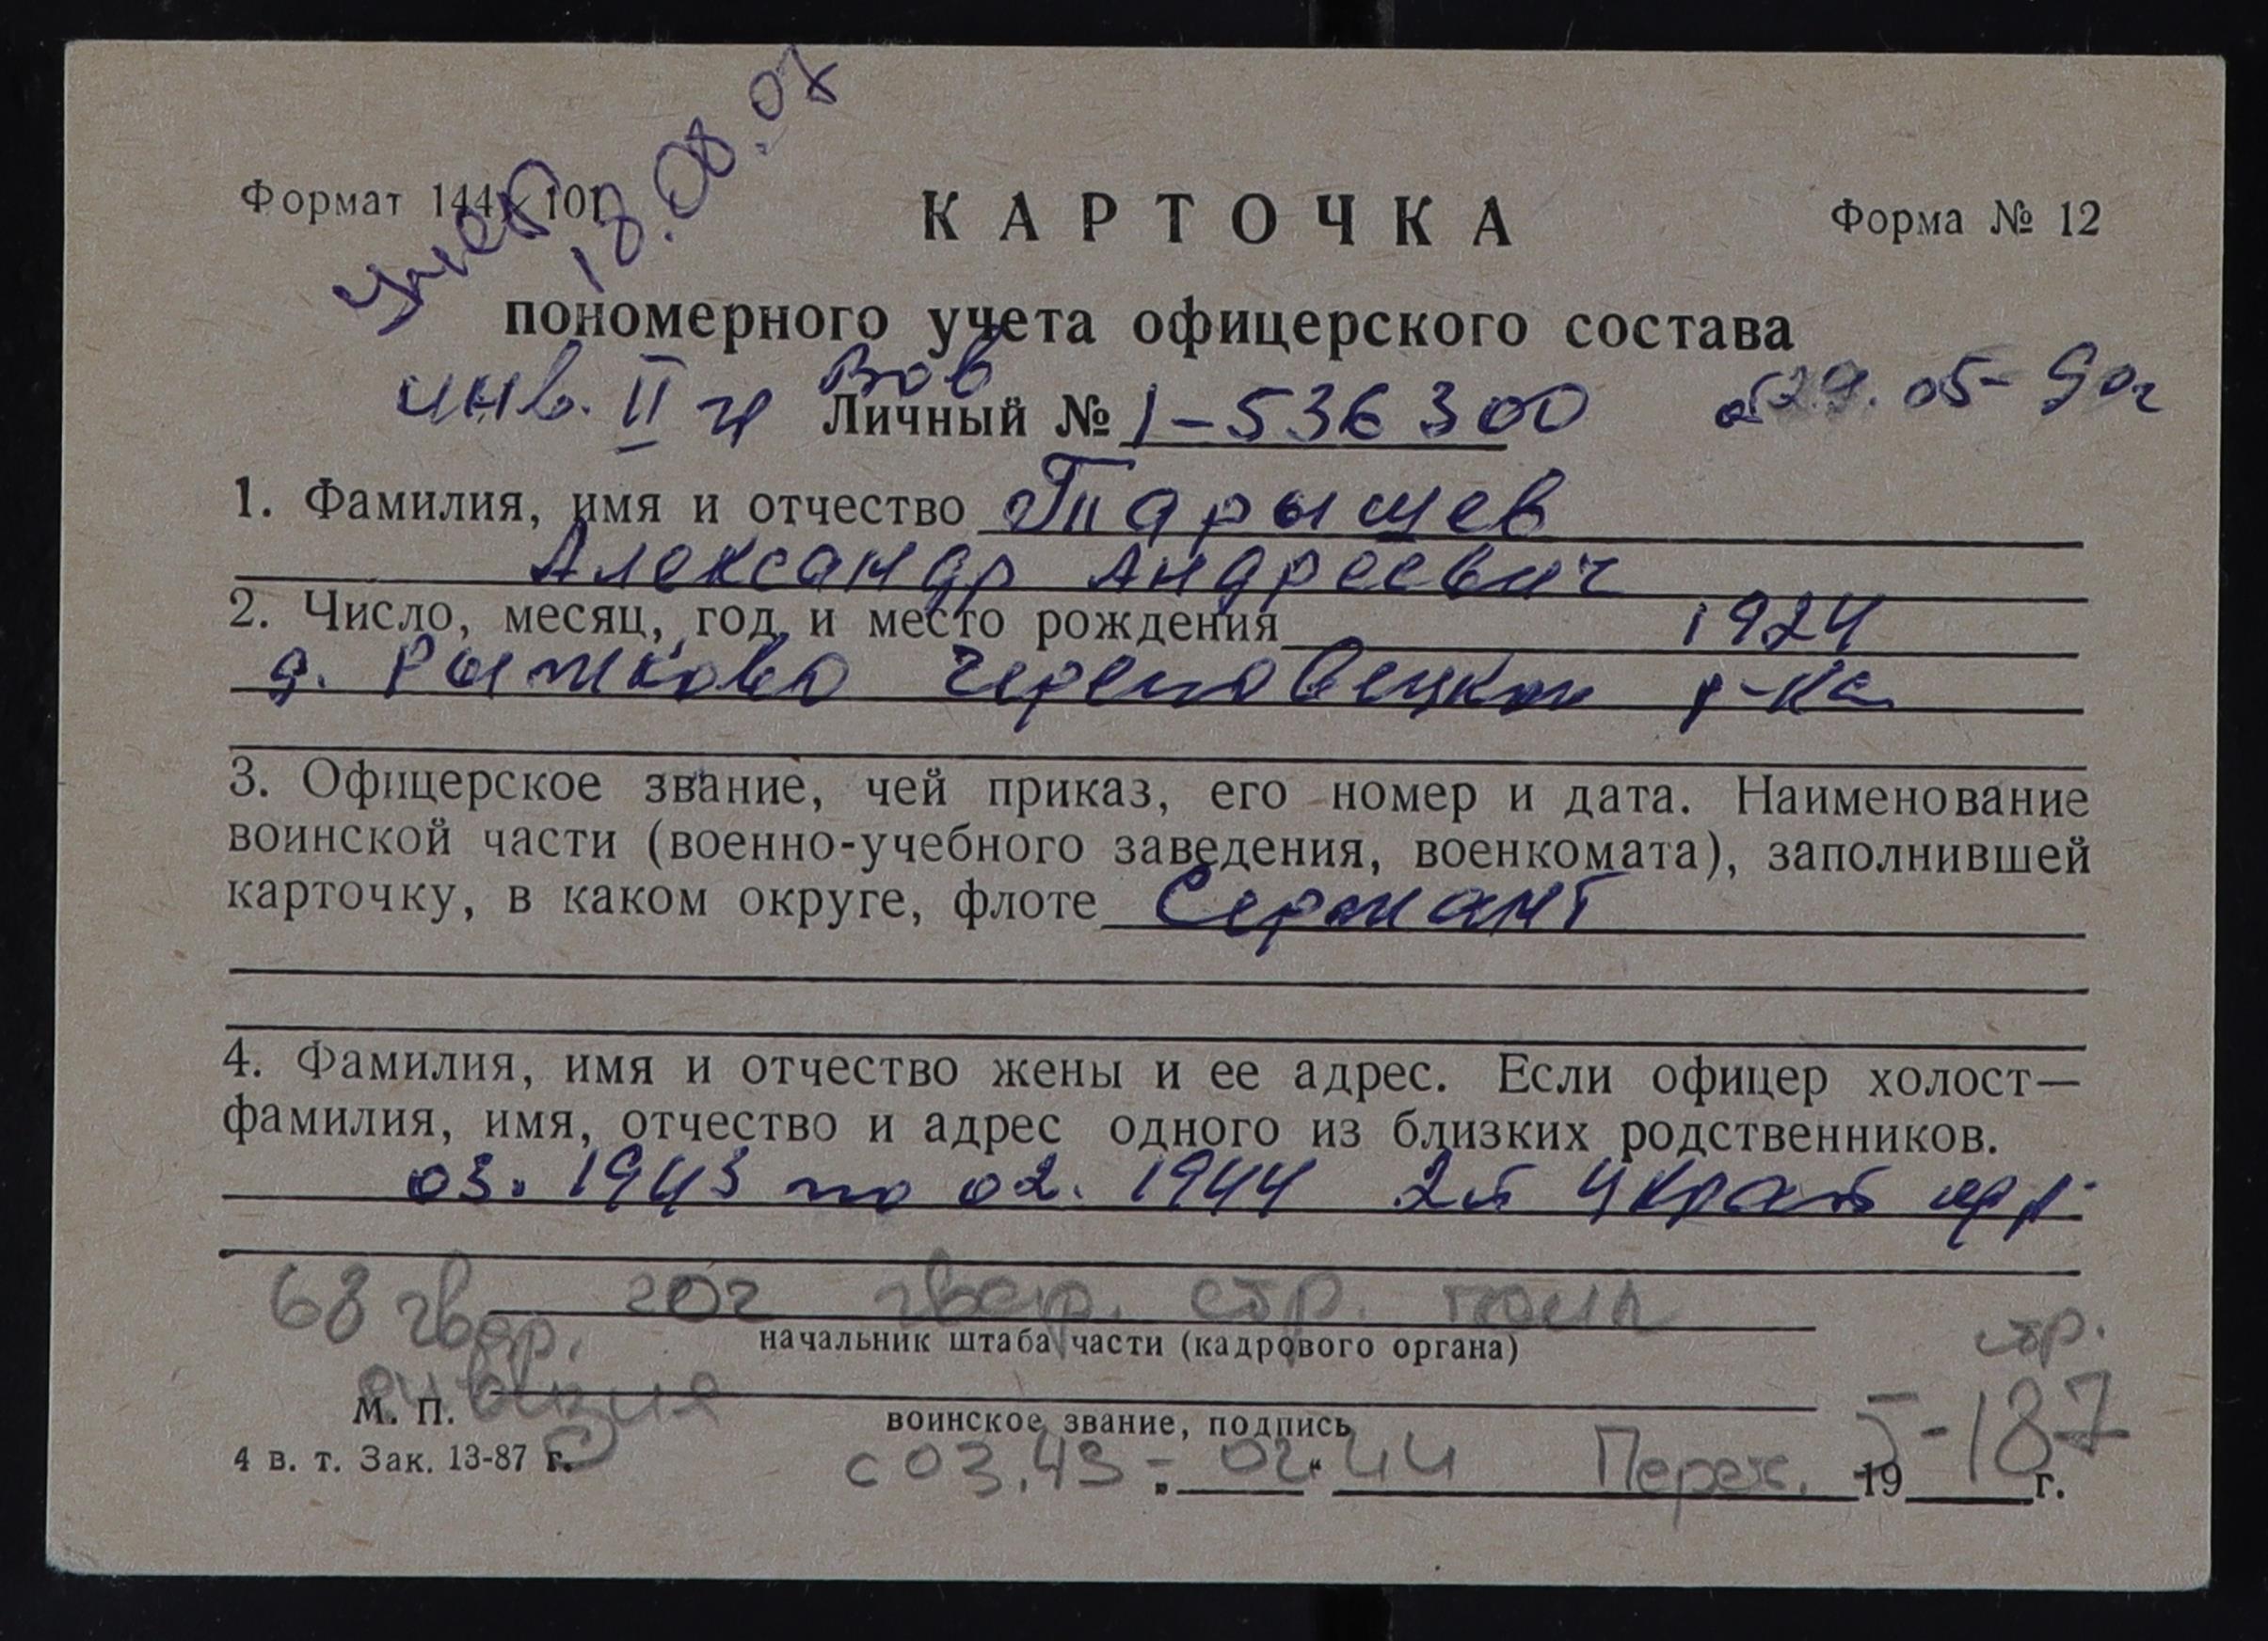 Формат 144×101
умер
18.08.07
КАРТОЧКА
Форма № 12
пономерного учета офицерского состава
инв. II г ВОв
Личный № 1-536300 от 29.05-90г
1. Фамилия, имя и отчество Тарышев
Александр Андреевич
2. Число, месяц, год и место рождения 1924
д. Рыжково Череповецкого р-на
3. Офицерское звание, чей приказ, его номер и дата. Наименование
воинской части (военно-учебного заведения, военкомата), заполнившей
карточку, в каком округе, флоте Сержант
4. Фамилия, имя и отчество жены и ее адрес. Если офицер холост—
фамилия, имя, отчество и адрес одного из близких родственников.
03. 1943 по 02. 1944 2й Украй фр.
68 гвар. 202 гвар. стр. полк
начальник штаба части (кадрового органа)
стр.
дивизия
М. П.
воинское звание, подпись
4 в. т. Зак. 13-87 г.
с 03.43 - 02.44 Переч. 5-187
„ “ 19 г.